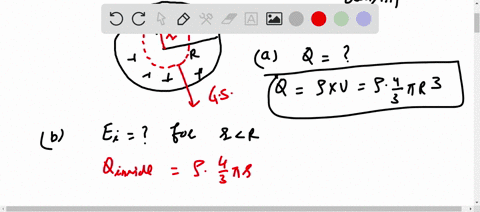 R
G.S.
(a) Q = ?
Q = ρxV = ρ·4/3 πR3
(b) Ei = ? for r<R
Qinside = ρ·4/3 πr